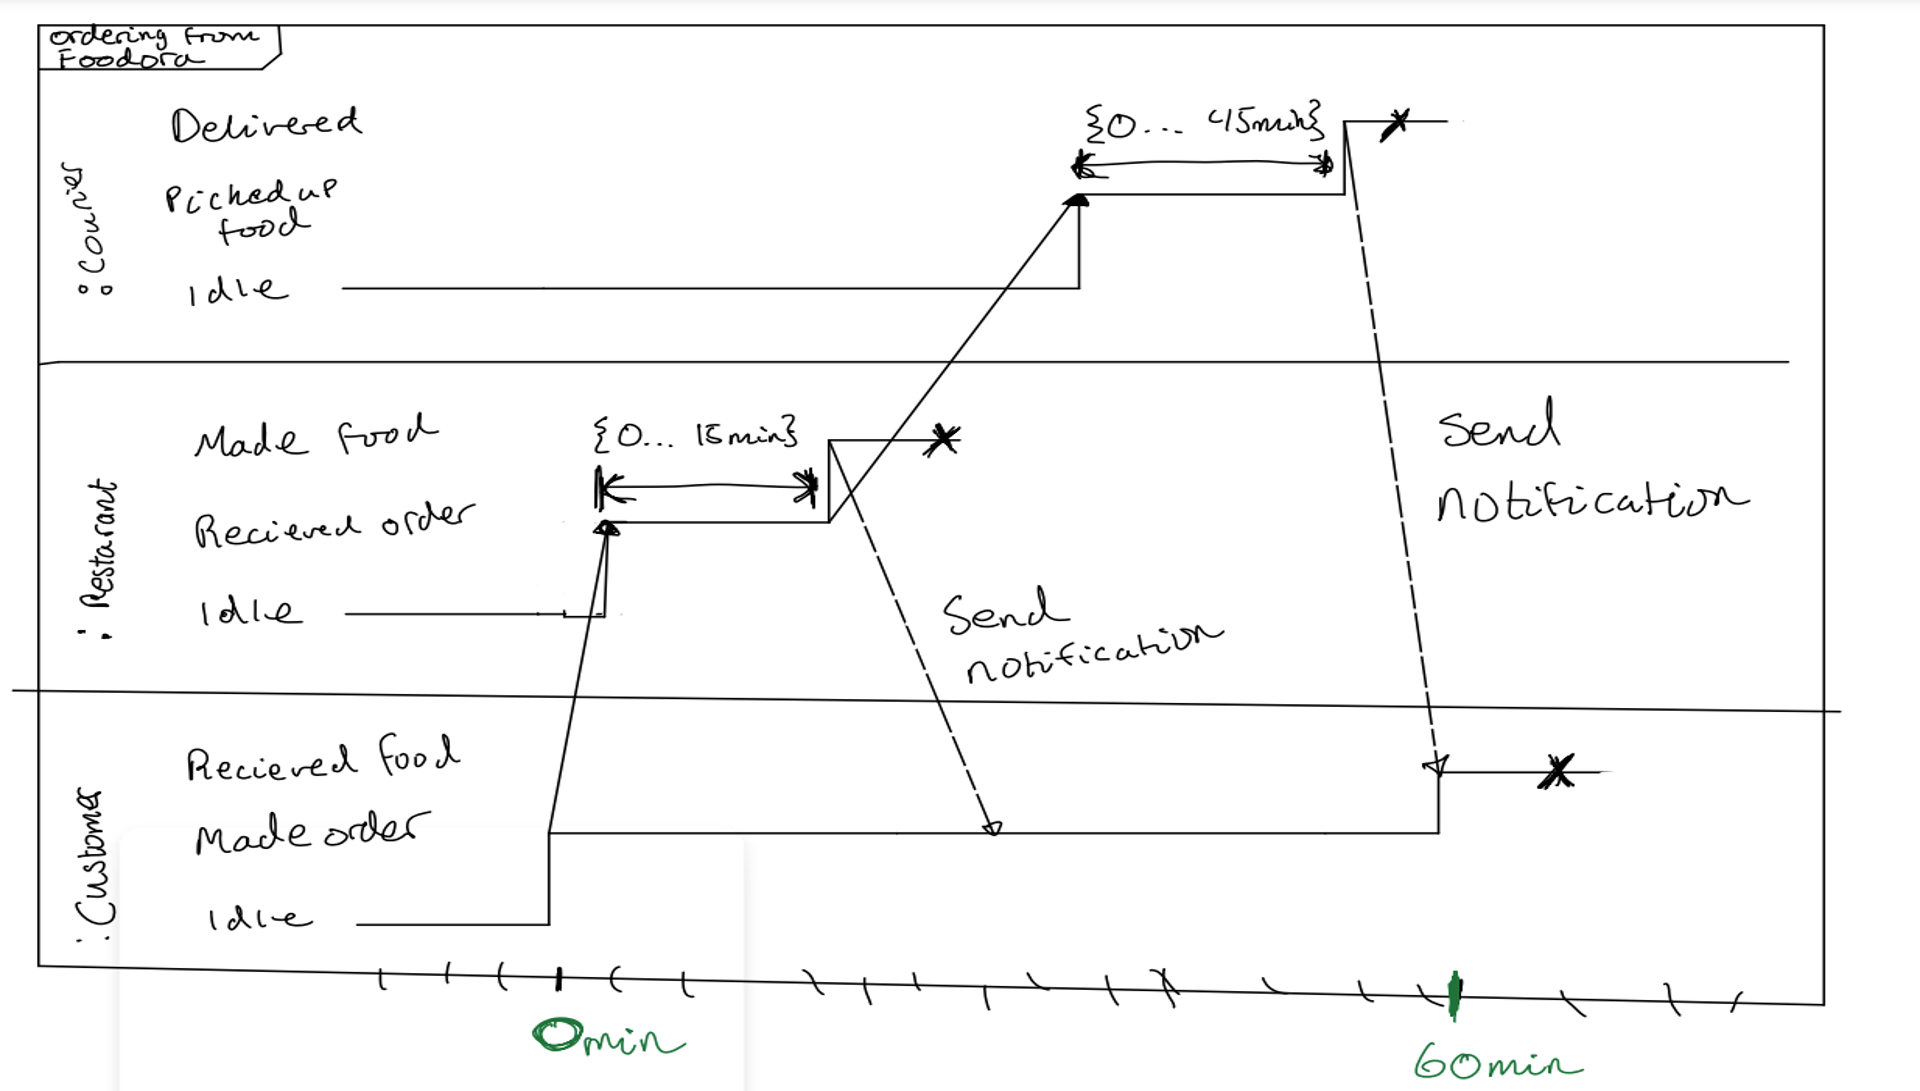 ordering from
Foodora
:Courier
Delivered
Picked up
food
Idle
{0... 45min}
:Restarant
Made food
Recieved order
Idle
{0... 15min}
Send
notification
Send
notification
:Customer
Recieved food
Made order
Idle
0min
60min